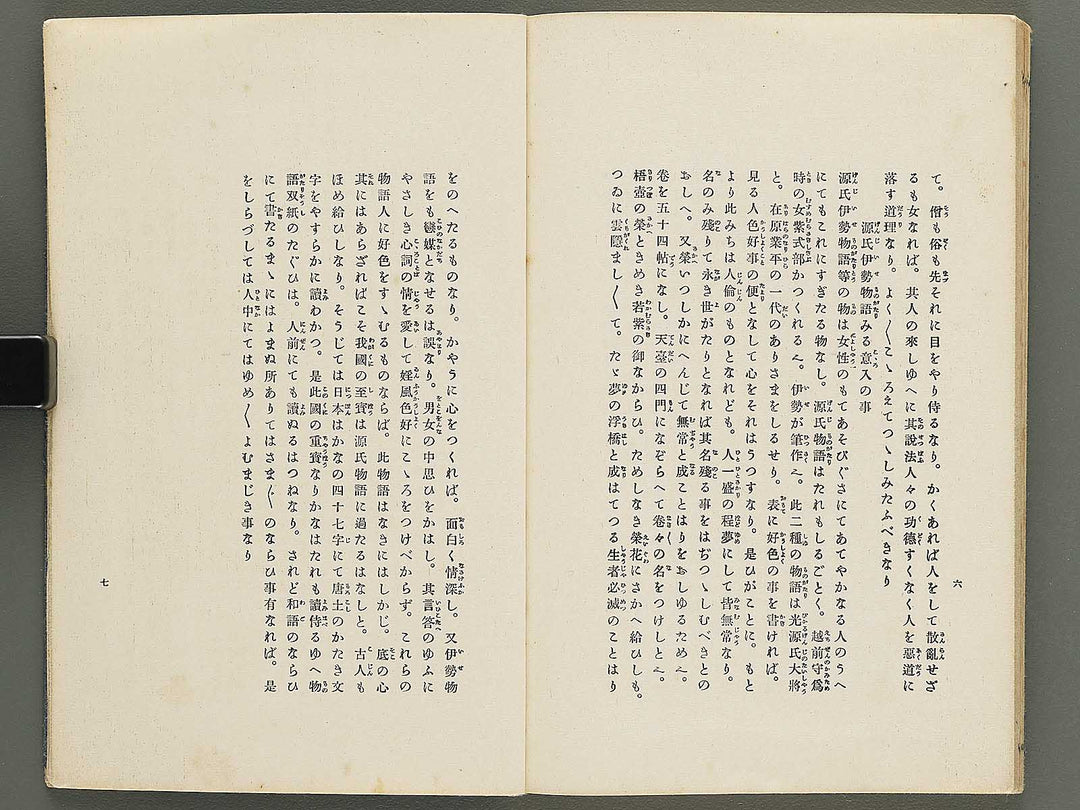 て。僧も俗も先それに目をやり侍るなり。かくあれば人をして散亂せざ
るも女なれば。其人の來しゆへに其說法人々の功德すくなく人を惡道に
落す道理なり。よく〳〵こゝろえてつゝしみたふべきなり
源氏伊勢物語みる意入の事
源氏伊勢物語等の物は女性のもてあそびぐさにてあてやかなる人のうへ
にてもこれにすぎたる物なし。源氏物語はたれもしるごとく。越前守爲
時の女紫式部かつくれる也。伊勢が筆作也。此二種の物語は光源氏大將
と。在原業平の一代のありさまをしるせり。表に好色の事を書ければ。
見る人色好事の便となして心をそれはうつすなり。是ひがことに。もと
より此みちは人倫のものとなれども。人一盛の程夢にして皆無常なり。
名のみ殘りて永き世がたりとなれば其名殘る事をはぢつゝしむべきとの
おしへ。又榮いつしかにへんじて無常と成ことはりをおしゆるため也。
卷を五十四帖になし。天臺の四門になぞらへて卷々の名をつけしと也。
梧壺の榮ときめき若紫の御なからひ。ためしなき榮花にさかへ給ひしも。
つゐに雲隱まし〳〵て。たゞ夢の浮橋と成はてつる生者必滅のことはり
六
をのへたるものなり。かやうに心をつくれば。面白く情深し。又伊勢物
語をも戀媒となせるは誤なり。男女の中思ひをかはし。其言答のゆふに
やさしき心詞の情を愛して婬風色好にこゝろをつけべからず。これらの
物語人に好色をすゝむるものならば。此物語はなきにはしかじ。底の心
其にはあらざればこそ我國の至寳は源氏物語に過たるはなしと。古人も
ほめ給ひしなり。そうじては日本はかなの四十七字にて唐土のかたき文
字をやすらかに讀わかつ。是此國の重寳なりかなはたれも讀侍るゆへ物
語双紙のたぐひは。人前にても讀ぬるはつねなり。されど和語のならひ
にて書たるまゝにはよまぬ所ありてはさま〴〵のならひ事有なれば。是
をしらづしては人中にてはゆめ〳〵よむまじき事なり
七